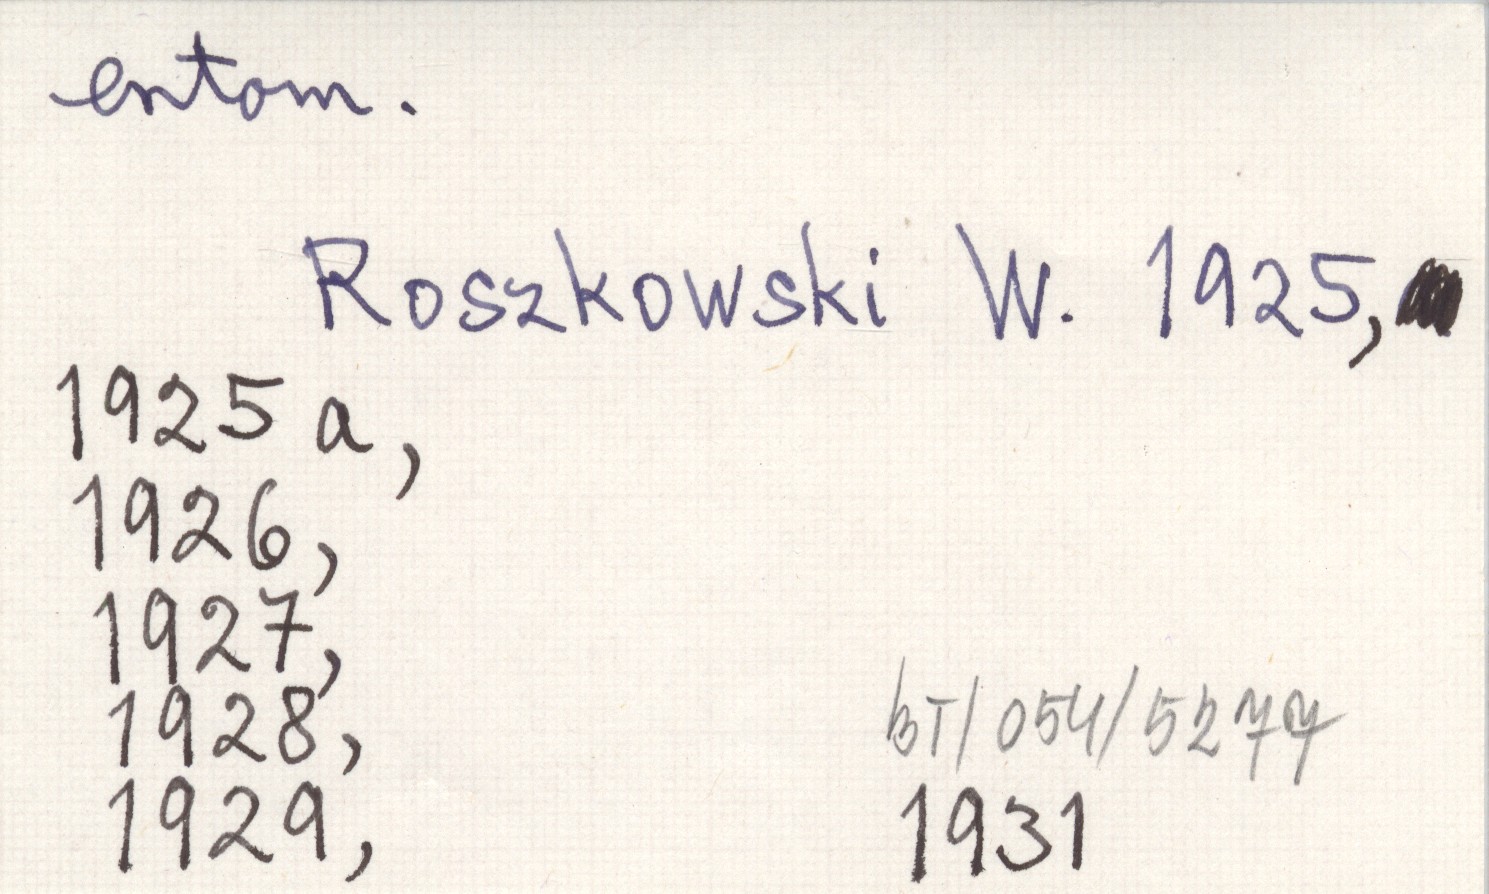 entom.
Roszkowski W. 1925,
1925 a,
1926,
1927,
1928,
BT/054/5277
1929, 1931